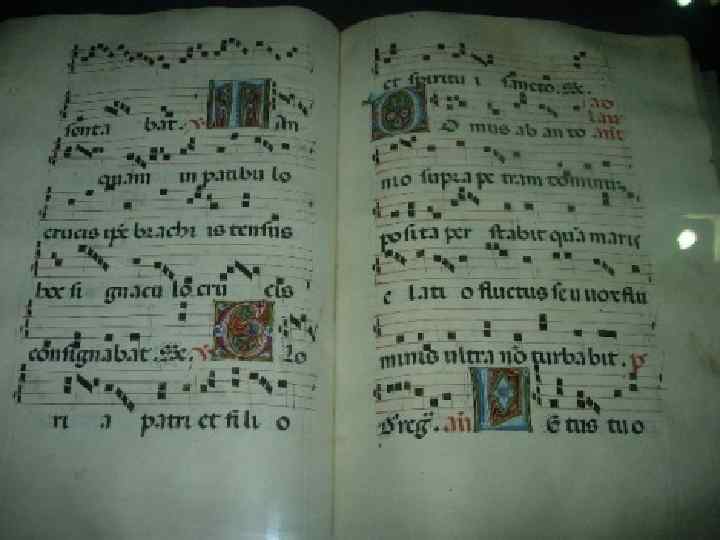 senta bat. ℣ Tan
quam in patibu lo
crucis ip̄e brachi is tensus
hoc si gnacu lo cru cis
consignabat. ℟e. ℣ Glo
ri a patri et fili o
et spiritui sancto. ℟e.
ad
lau
D O mus ab an to añt
nio supra pe tram
posita per stabit qua maris
e lati o fluctus seu vox flu
minū ultra nō turbabit. p̄
añ P E tus tuo